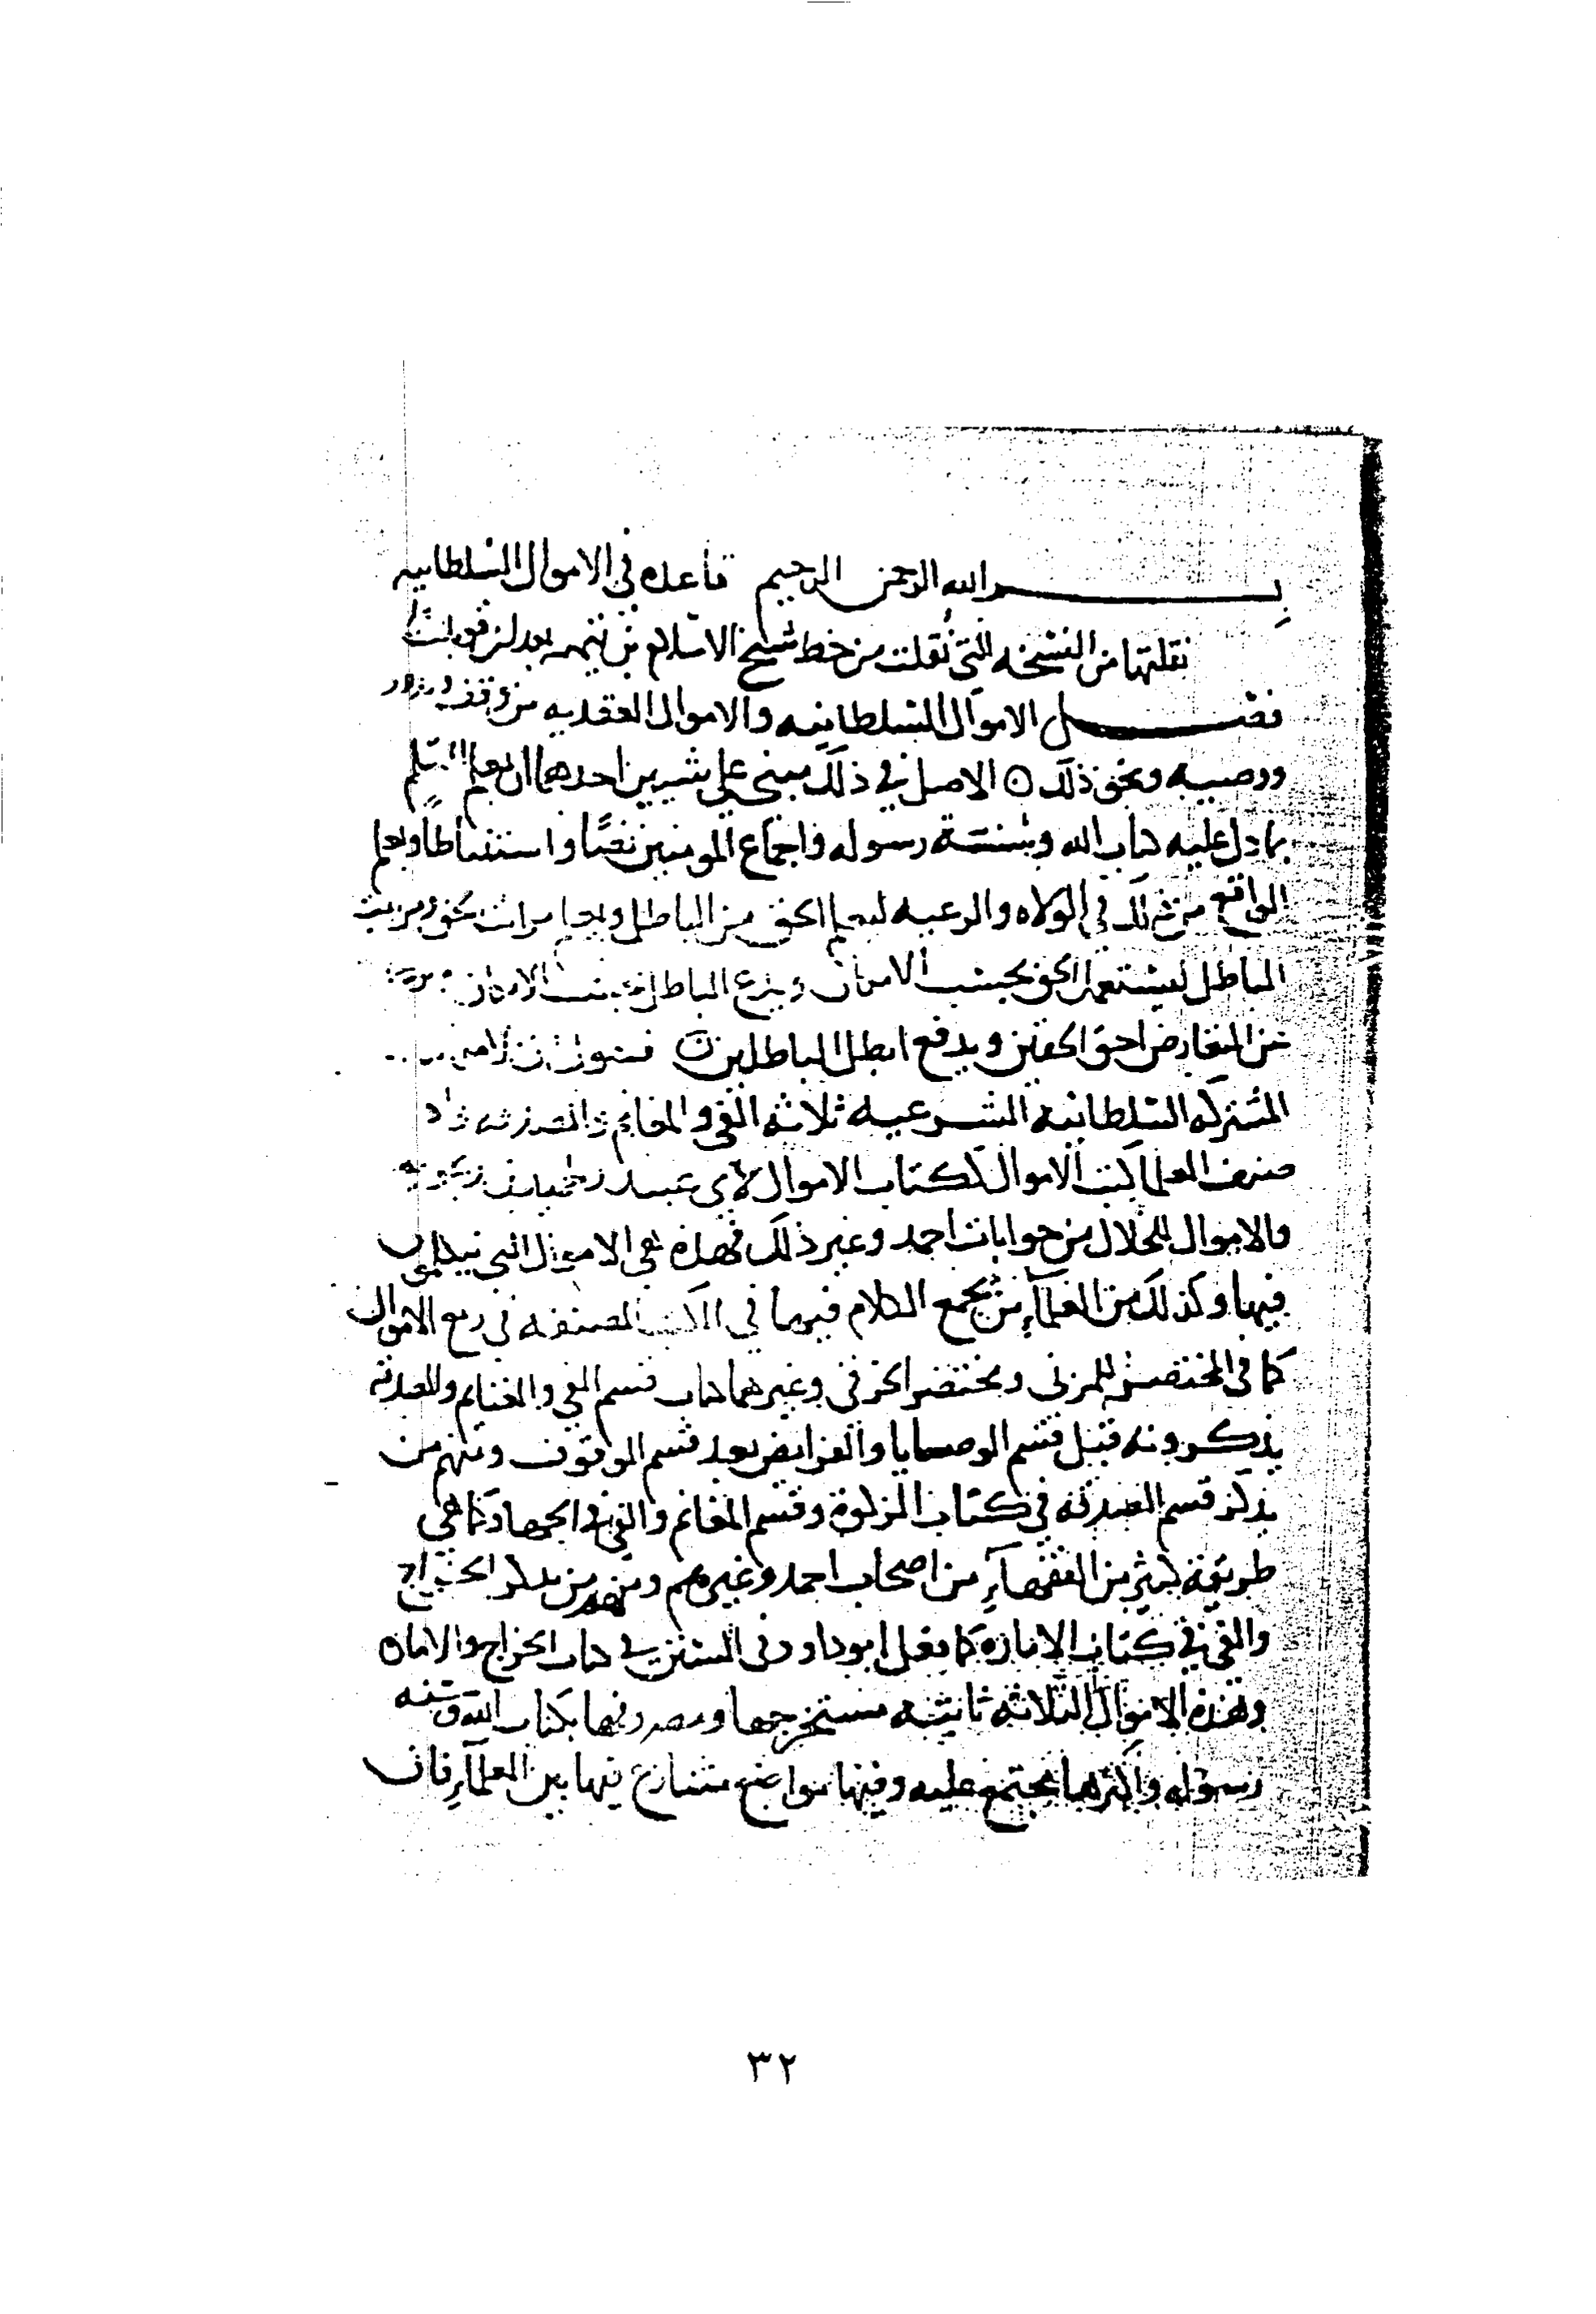 بسم الله الرحمن الرحيم قاعده في الاموال السلطانيه
نقلتها من النسخه التي نقلت من خط شيخ الاسلام بن تيميه بعد ان قوبلت
فصل الاموال السلطانيه والاموال العقديه من وقف ونذور
ووصيه ونحو ذلك ن الاصل في ذلك مبني على شيين احدهما ان يعلم المسلم
بما دل عليه كتاب الله وسنة رسوله واجماع المومنين نصًا واستنباطا ويعلم
الواقع من ذلك في الولاه والرعيه ليعلم الحق من الباطل ويعلم مراتب الحق ومراتب
الباطل ليستعمل الحق بحسب الامكان ويدع الباطل بحسب الامكان ويرجح
عند التعارض احق الحقين ويدفع ابطل الباطلين ن فنقول ان الاموال
المشتركه السلطانيه الشرعيه ثلاثه الفي والمغانم والصدقه وقد
صنف العلما كتب الاموال ككتاب الاموال لابي عبيد ولحميد بن زنجويه
والاموال للخلال من جوابات احمد وغير ذلك فهذه هي الاموال التي يتكلمون
فيها وكذلك من العلمآء من يجمع الكلام فيها في الكتب المصنفه في ربع الاموال
كما في المختصر للمزني ومختصر الخرقي وغيرهما كتاب قسم الفي والغنايم والصدقه
يذكرونه قبل قسم الوصايا والفرايض بعد قسم الوقوف ومنهم من
يذكر قسم الصدقه في كتاب الزكوة وقسم المغانم والفي في الجهاد كما هي
طريقة كثير من الفقهآء من اصحاب احمد وغيرهم ومنهم من يذكر الخراج
والفي في كتاب الاماره كما فعل ابو داود في السنن في كتاب الخراج والاماره
وهذه الاموال الثلاثه ثابته مستخرجها ومصروفها بكتاب الله وسنه
رسوله واكثرها مجتمع عليه وفيها مواضع متنازع فيها بين العلمآء فان
٣٢